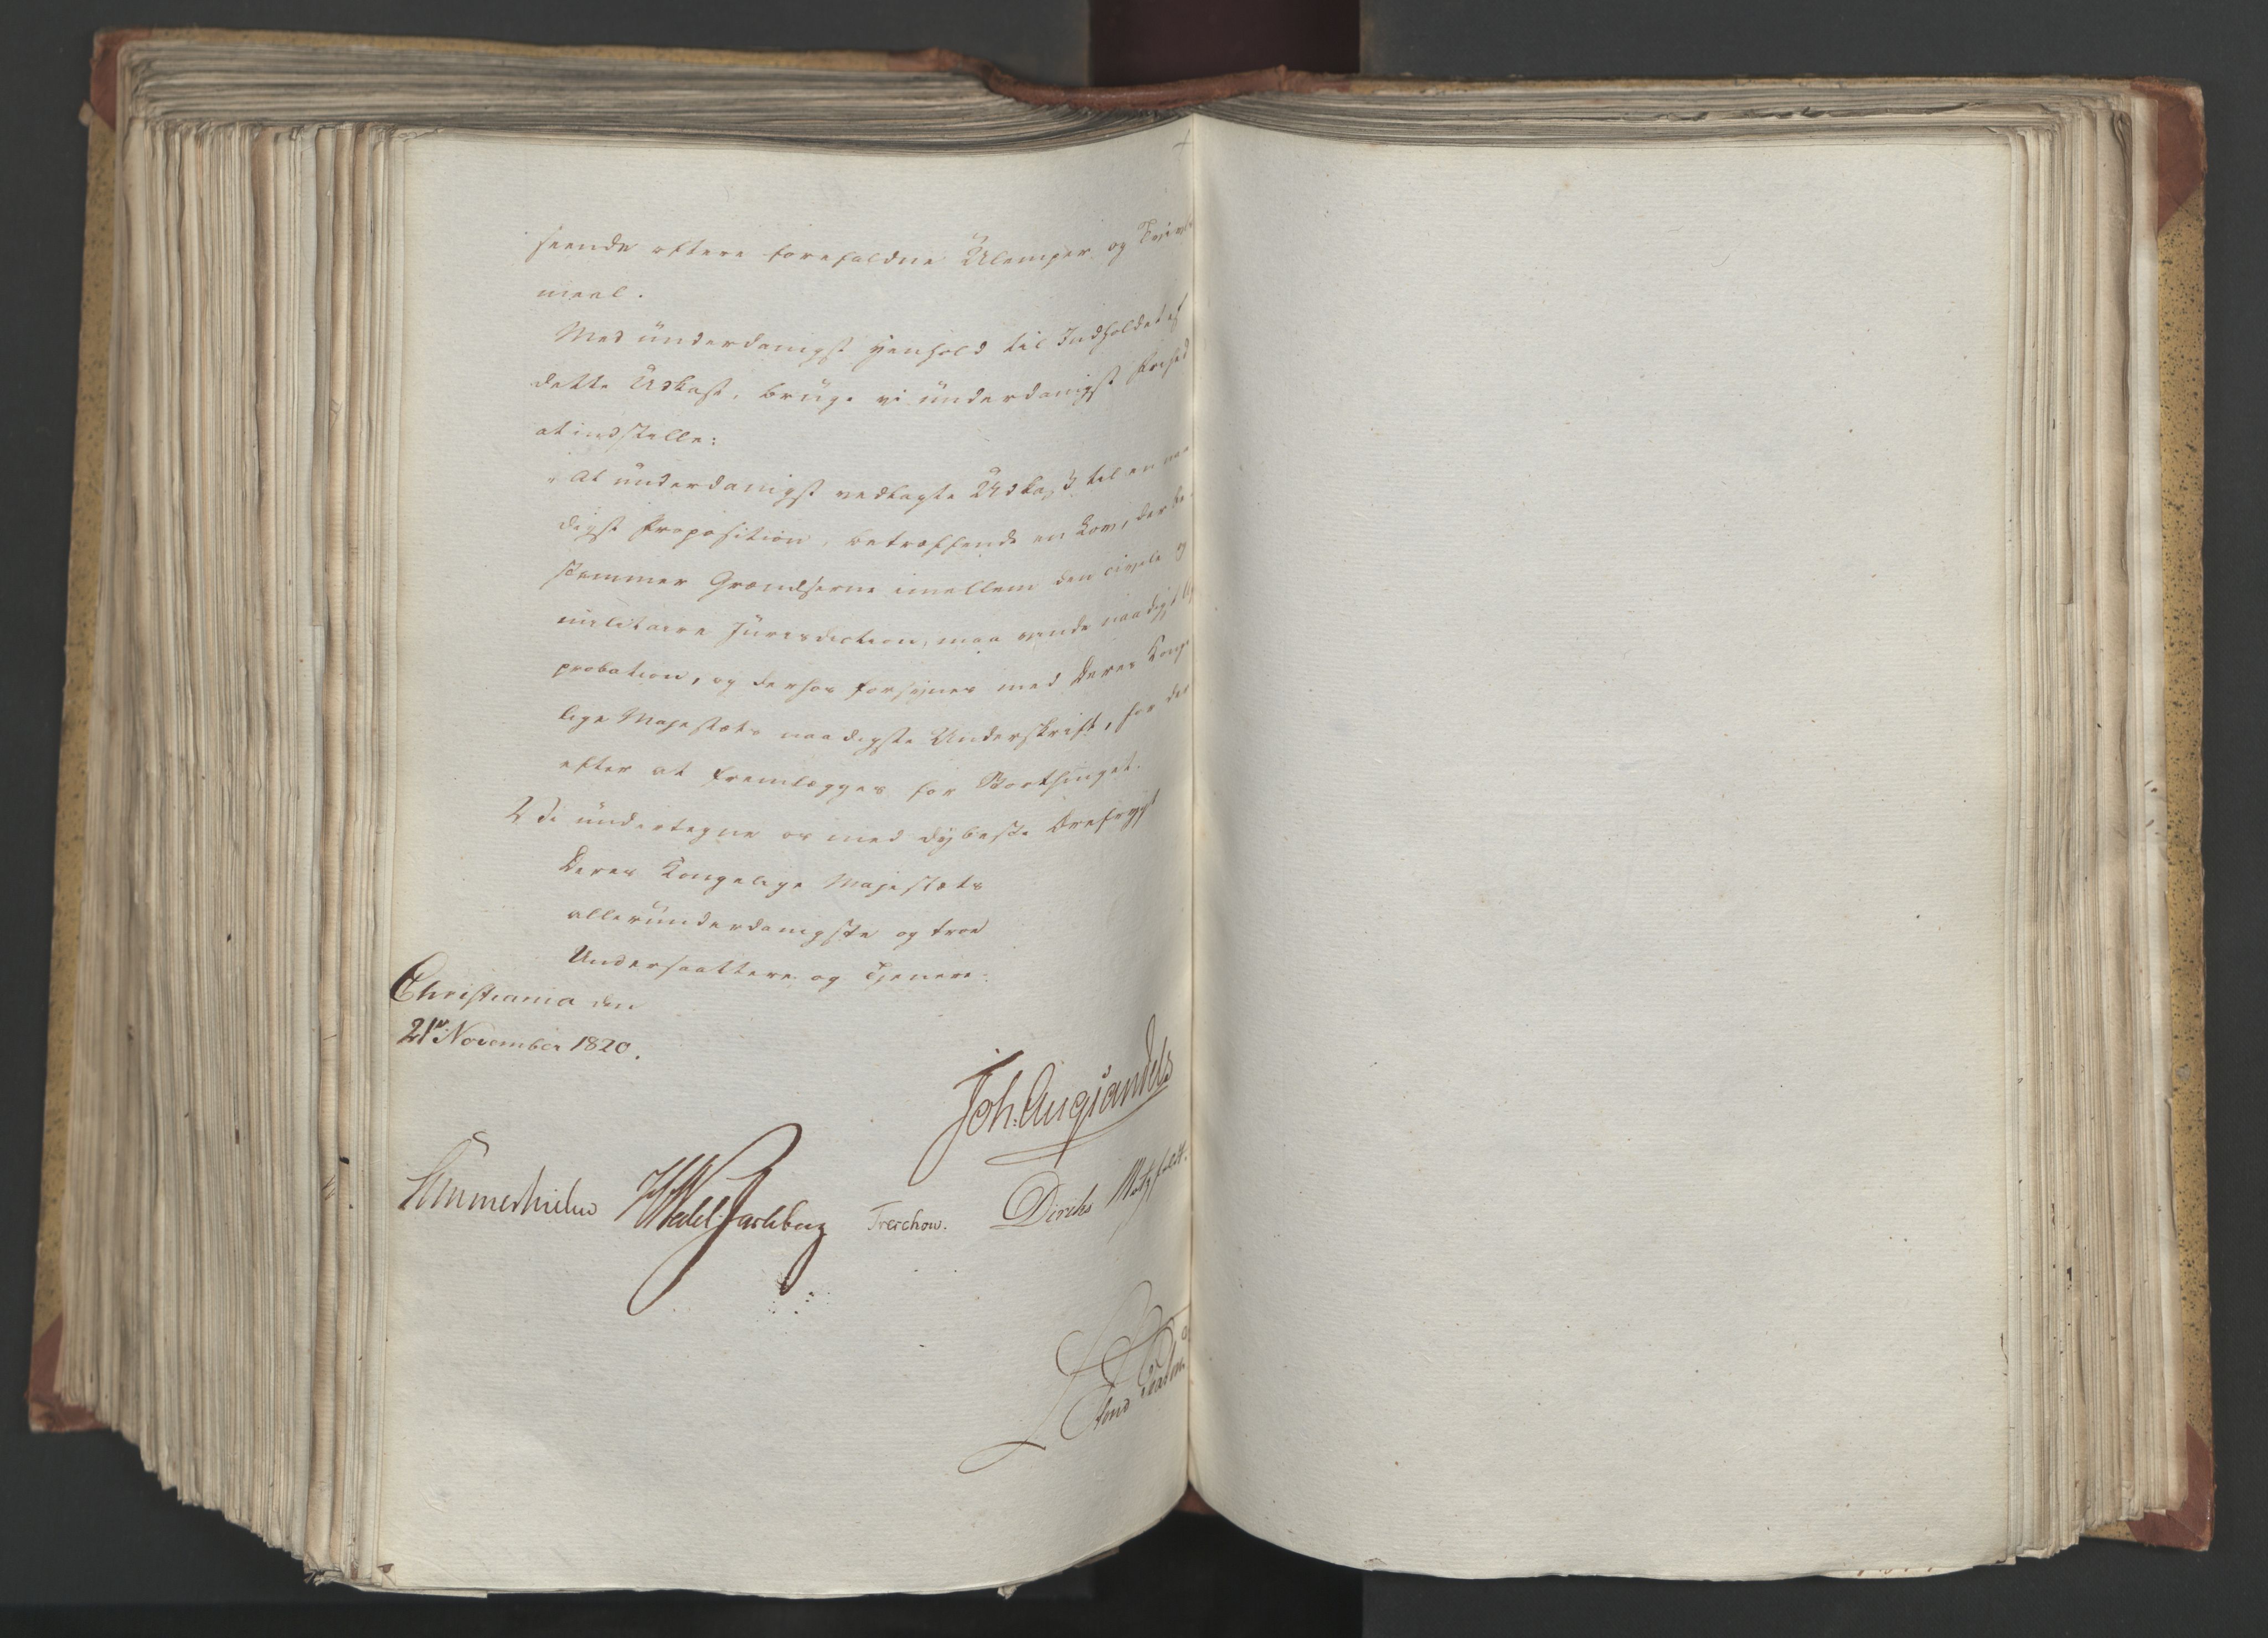 seende oftere forefaldne Ulemper og Tvivls
maal.
Med underdanigst Henhold til Indholdet af
dette Udkast, bruge vi underdanigst Frihed
at indstille:
"At underdanigst vedlagte Udkast til en naa
digst Proposition, betræffende en Lov, der be-
stemmer Grændserne imellem den civile og
militaire Jurisdiction, maa vinde naadigst Ap
probation, og derhos forsynes med Deres Konge
lige Majestæts naadigste Underskrift, for der
efter at fremlægges for Storthinget.
Vi undertegne os med dybeste Ærefrygt
Deres Kongelige Majestæts
allerunderdanigste og troe
Undersaattere og Tjenere.
Christiania den
21de November 1820.
Joh. Aug Sandels
Sommerhielm HWedel Jarlsberg Treschow. Diriks Motzfeldt.